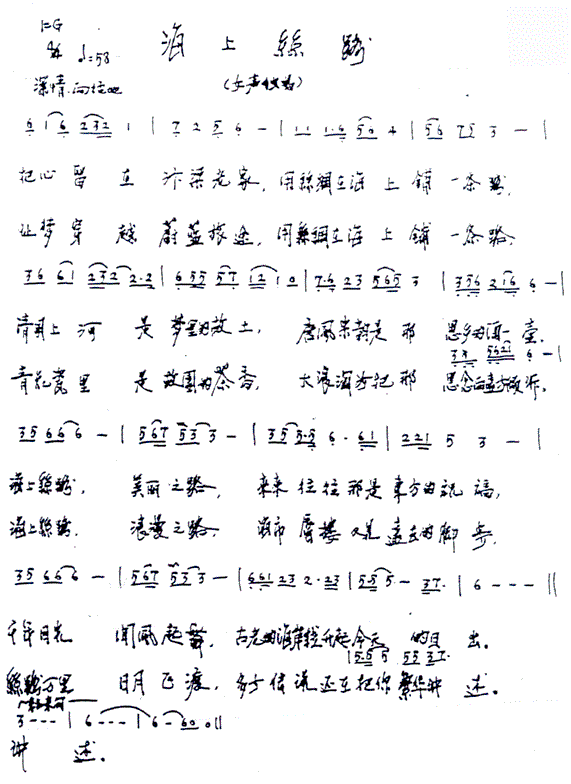 1=G
4/4 ♩=58
海上絲路
深情.向往地
(女声独唱)
6 1 6 2 3 2 1 | 7 2 5 6 - | 1 1 1·6 5 6 4 | 5 6 7 5 3 - |
把心留在汴梁老家, 用絲綢在海上鋪一条路,
让梦穿越蔚蓝旅途, 用絲綢在海上鋪一条路.
3 6 6 1 2 3 2 2·2 | 6 5 5 5 7 1 2 1 0 | 7·6 2 3 5 6 5 3 | 3 5 6 2 1 6 6 - |
清明上河是梦里的故土, 唐风宋韵是那思乡的酒一壶.
青花瓷里是故園的茶香, 大浪淘沙记那思念
3 5 6 6 6 - | 5 6 7 5 3 3 - | 3 5 5 5·5 6· 6 1 | 2 2 1 5 3 - |
海上絲路, 美丽之路, 来来往往那是東方的祝福,
海上絲路. 浪漫之路. 海市蜃樓又见遠去的脚步.
3 5 6 6 6 - | 5 6 7 5 3 3 - | 6 6 1 2 3 2·2 3 | 5 5 5 - 3 7· | 6 - - - ||
千年月光闻風起舞, 古老的海岸线升起今天的日出.
| 5·5 5 5 5 3 7·
絲路万里日月飞渡, 多少传说还在把你繁华讲述.
3 - - - | 6 - - - | 6 - 6 0 0 ||
讲述.